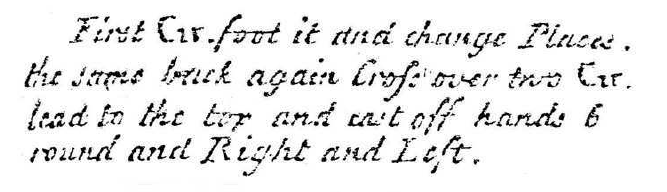 First Cu. foot it and change Places.
the same back again Cross over two Cu.
lead to the top and cast off hands 6
round and Right and Left.